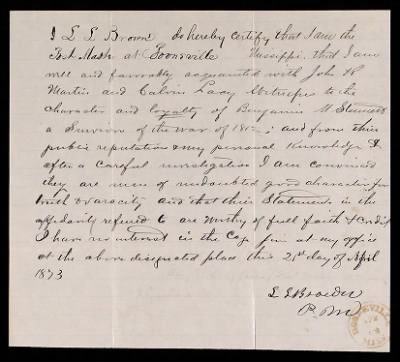 I L L Brown do hereby certify that I am the
Post Mastr at Boonsville Missippi, that I am
well and favorably acquainted with John R
Martin and Calvin Lacy Witnesses to the
Character and loyalty of Benjamin M Stennett
a Survivor of the War of 1812; and from their
public reputation & my personal Knowledge &
after a Careful investigation I am convinced
they are men of undoubted good character for
truth & varacity and that their Statements in the
affidavits refered to are worthy of full faith & Credit
I have no interest in the Case given at my office
at the above designated place this 21st day of April
1873
P. M